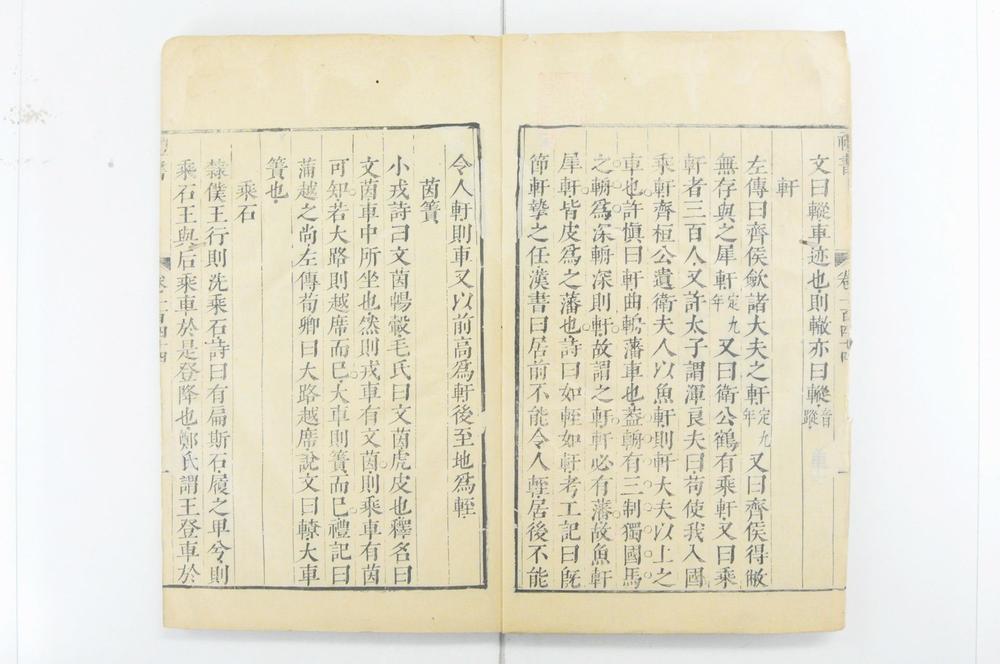 禮書
卷一百四十四
文曰蹤車迹也則轍亦曰蹤音蹤
軒
左傳曰齊侯斂諸大夫之軒定九年又曰齊侯得敝
無存與之犀軒定九年又曰衛公鶴有乘軒又曰乘
軒者三百人又許太子謂渾良夫曰苟使我入國
乘軒齊桓公遺衛夫人以魚軒則軒大夫以上之
車也許愼曰軒曲輈藩車也蓋輈有三制獨國馬
之輈爲深輈深則軒故謂之軒軒必有藩故魚軒
犀軒皆皮爲之藩也詩曰如輊如軒考工記曰旣
節軒摯之任漢書曰居前不能令人輊居後不能
令人軒則車又以前高爲軒後至地爲輊
茵簀
小戎詩曰文茵暢轂毛氏曰文茵虎皮也釋名曰
文茵車中所坐也然則戎車有文茵則乘車有茵
可知若大路則越席而已大車則簀而已禮記曰
蒲越之尚左傳荀卿曰大路越席說文曰轑大車
簀也
乘石
隸僕王行則洗乘石詩曰有扁斯石履之卑兮則
乘石王與后乘車於是登降也鄭氏謂王登車於
卷一百四十四